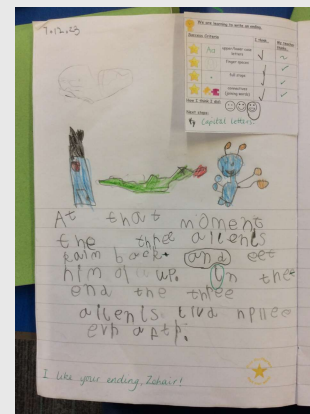 7.12.23
We are learning to write an ending.
Success Criteria
I think..
My teacher thinks..
Aa
upper/lower case letters
finger spaces
full stops
conjunctions (joining words)
How I think I did:
Next steps:
Capital letters
At that moment
the three alients
back and eet
him up. In the
end the three
alients livd
I like your ending, Zehair!